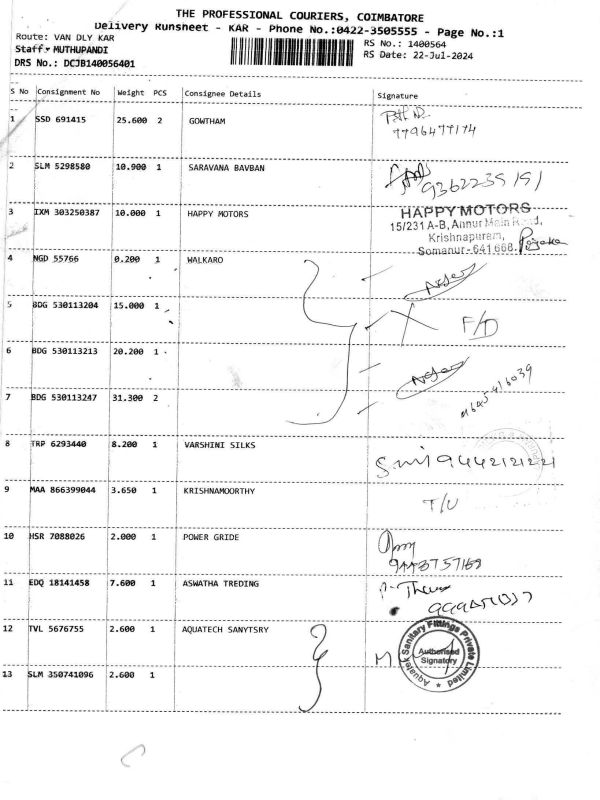 THE PROFESSIONAL COURIERS, COIMBATORE
Delivery Runsheet - KAR - Phone No.:0422-3505555 - Page No.:1
Route: VAN DLY KAR
Staff: MUTHUPANDI
DRS No.: DCJB140056401
RS No.: 1400564
RS Date: 22-Jul-2024
S No Consignment No Weight PCS Consignee Details Signature
1 SSD 691415 25.600 2 GOWTHAM
7796477174
2 SLM 5298580 10.900 1 SARAVANA BAVBAN
9362239191
3 IXM 303250387 10.000 1 HAPPY MOTORS
HAPPY MOTORS
15/231 A-B, Annur Main Road,
Krishnapuram,
Somanur-641 668.
4 NGD 55766 0.200 1 WALKARO
5 BDG 530113204 15.000 1
F/D
6 BDG 530113213 20.200 1
7 BDG 530113247 31.300 2
8 TRP 6293440 8.200 1 VARSHINI SILKS
9442121221
9 MAA 866399044 3.650 1 KRISHNAMOORTHY
T/U
10 HSR 7088026 2.000 1 POWER GRIDE
11 EDQ 18141458 7.600 1 ASWATHA TREDING
12 TVL 5676755 2.600 1 AQUATECH SANYTSRY
M
Sanitary Fittings Private Limited
Authorised
Signatory
13 SLM 350741096 2.600 1